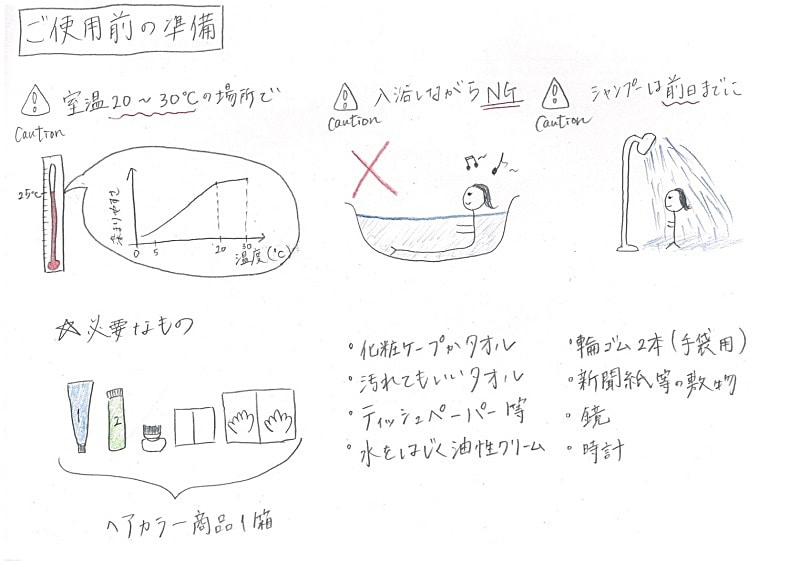 ご使用前の準備
室温20〜30℃の場所で
Caution
25℃
染まりやすさ
0 5 20 30
温度(℃)
入浴しながらNG
Caution
シャンプーは前日までに
Caution
☆必要なもの
1
2
ヘアカラー商品1箱
・化粧ケープかタオル
・汚れてもいいタオル
・ティッシュペーパー等
・水をはじく油性クリーム
・輪ゴム2本(手袋用)
・新聞紙等の敷物
・鏡
・時計